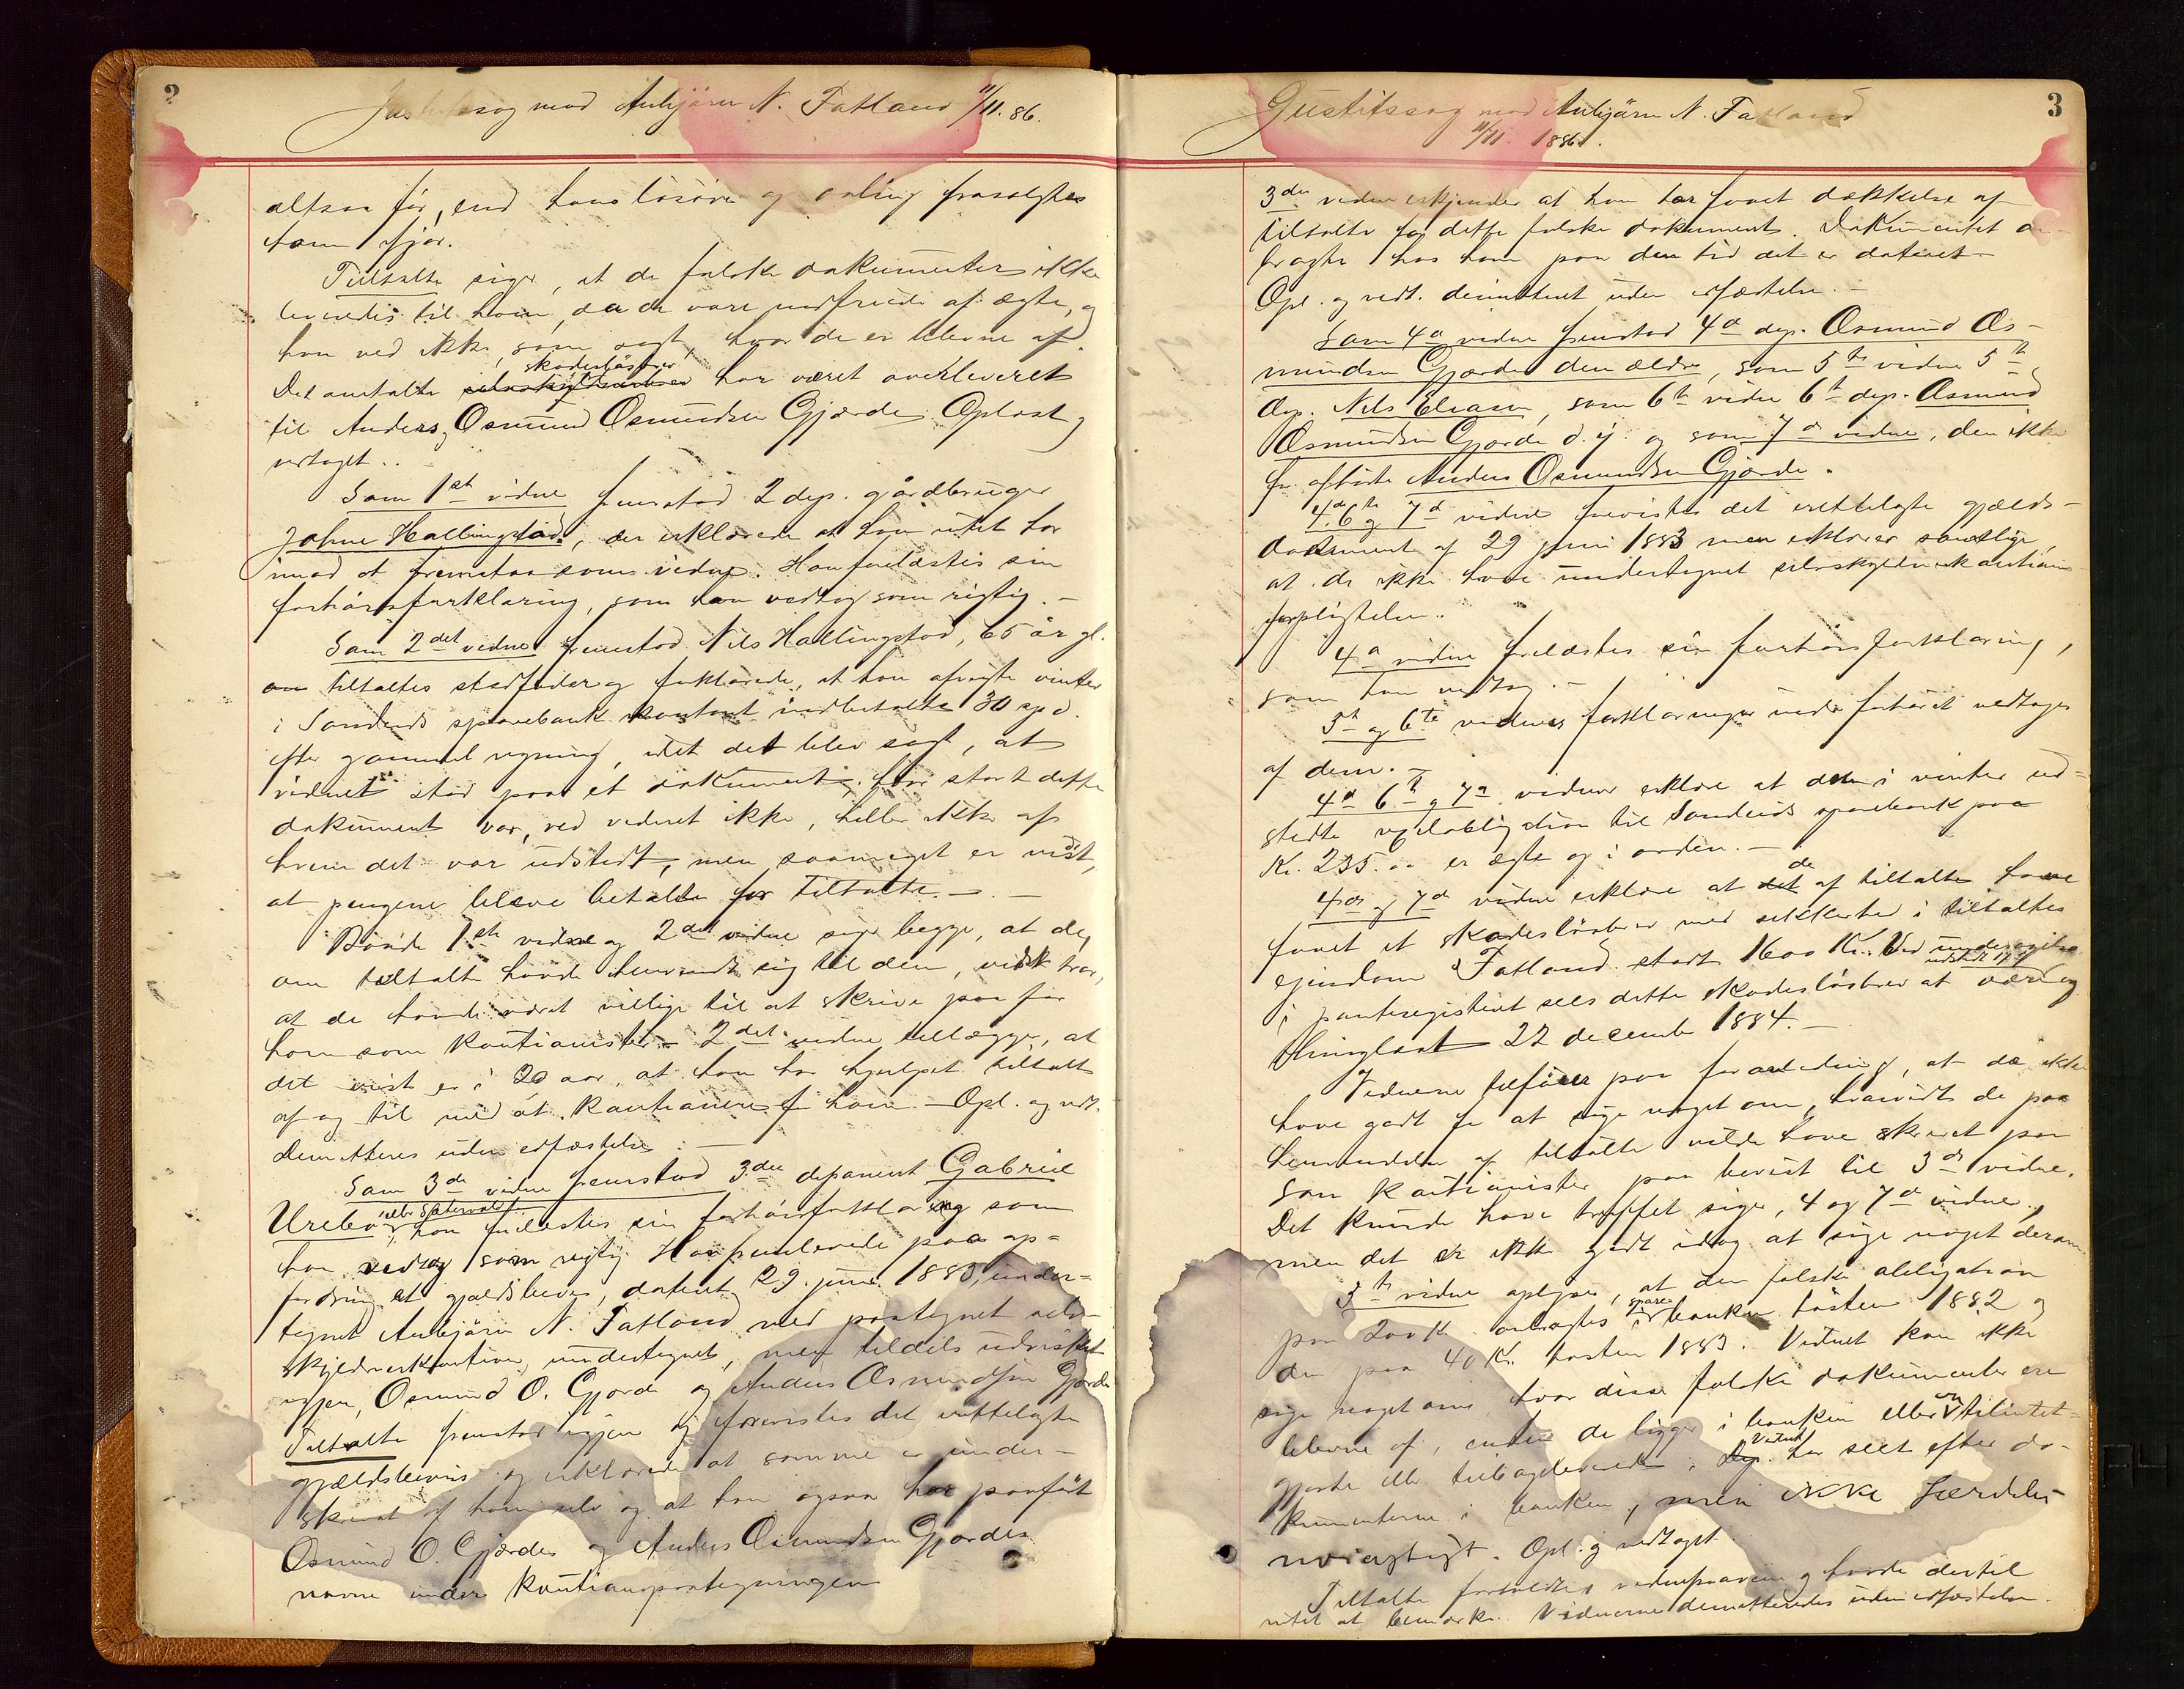 2
Justitssag mod Anbjörn N. Fatland 11/11. 86.
altsaa før, end hans løsøre og avling frasolgtes
ham ifjor.
Tiltalte siger, at de falske dokumenter ikke
leveredes til ham, da de vare indfriede af ægte, og
han ved ikke, som sagt, hvor de er blevne af.
skadesløsbrev
Det omtalte har været overleveret
til Anders, Osmund Osmundsen Gjærde. Oplæst,
vedtaget. .
Som 1ste vidne fremstod 2 dep. gårdbruger
Johne Hallingstad, der erklærede at han intet har
imod at fremstaa som vidne. Han forelæstes sin
forhørsforklaring, som han vedtog som rigtig. –
Som 2det vidne fremstod Nils Hallingstad, 65 år gl.
tiltaltes stedfader og forklarede, at han afvigte vinter
i Sandeids sparebank kontant indbetalte 30 spd.
efter gammel regning, idet det blev sagt, at
vidnet stod paa et dokument; hvor stort dette
dokument var, ved vidnet ikke, heller ikke af
hvem det var udstedt, men saameget er vist,
at pengene bleve betalte for tiltalte. –
Både 1ste vidne og 2det vidne siger begge, at de,
om tiltalte havde henvendt sig til dem, vidst har,
at de havde været villige til at skrive paa for
ham som kautionister. – 2det vidne tillægger, at
det vist er i 20 aar, at han har hjulpet tiltalte
af og til med at kautionere for ham. – Opl. og vedt.
Demitteres uden edfæstelse. –
Som 3de vidne fremstod 3die deponent Gabriel
Urebø, han forelæstes sin forhørsforklaring som
han vedtog som rigtig. Han fremleverede paa op=
fordring et gjældsbevis, dateret 29. juni 1883, under=
tegnet Anbjörn N. Fatland med paategnet selv-
skyldnerkaution, undertegnet, men tildels udvisket
igjen, Osmund O. Gjærde og Anders Osmundsen Gjærde
Tiltalte fremstod igjen og forevistes det irettelagte
gjældsbevis og erklærede at samme er under-
skrevet af ham selv og at han ogsaa har paaført
Osmund O. Gjærdes og Anders Osmundsen Gjærdes
navne under kautionspaategningen
3
Justitssag mod Anbjörn N. Fatland
11/11. 1886.
3die vidne erkjender at han har faaet dækkelse af
tiltalte for dette falske dokument. Dokumentet
bragte hos ham paa den tid det er dateret –
Opl. og vedt. demitteret uden edfæstelse. –
Som 4de vidne fremstod 4de dep. Osmund Os-
mundsen Gjærde den ældre, som 5te vidne 5te
dep. Nils Eliasen, som 6te vidne 6te dep. Osmund
Osmundsen Gjærde d. y. og som 7de vidne, den ikke
før afhørte Anders Osmundsen Gjærde.
4de 6te og 7de vidne forevistes det irettelagte gjælds-
dokument af 29 juni 1883 men erklærer samtlige
at de ikke have undertegnet selvskyldnerkautions
forpligtelsen.
4de vidne forelæstes sin forhørsforklaring,
som han vedtog. –
5te og 6te vidnes forklaringer under forhøret vedtages
af dem. –
4de 6te og 7de vidner erklære at den i vinter ud=
stedte vexelobligation til Sandeids sparebank paa
Kr. 235.00 er ægte og i orden. –
de
4de og 7de vidne erklære at af tiltalte have
faaet et skadesløsbrev med sikkerhed i tiltaltes
ejendom Fatland stort 1600 Kr. Ved undersøgelse
i panteregisteret sees dette skadesløsbrev at være
thinglæst 22 december 1884. –
Vidnerne tilføier paa foranledning, at de ikke
have godt for at sige noget om, hvorvidt de paa
henvendelse af tiltalte vilde have skrevet paa
som kautionister paa bevist til 3die vidne.
Det kunde have truffet siger, 4 og 7de vidne,
men det er ikke godt idag at sige noget derom.
5te vidne oplyser, at den falske obligation
spare
paa 200 Kr. anbragtes i banken høsten 1882 og
den paa 40 Kr. høsten 1883. Vidnet kan ikke
sige noget om, hvor disse falske dokumenter ere
blevne af, enten de ligger i banken eller er tilintet=
Vidnet
gjorte eller tilbageleverede. har seet efter do-
kumenterne i banken, men ikke særdeles
nøiagtigt. Opl. og vedtaget.
Tiltalte foreholdtes vidneprovene og havde dertil
intet at bemærke. Vidnerne demitteredes uden edfæstelse.